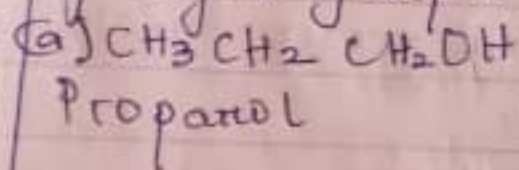 (a) CH3 CH2 CH2OH
Propanol